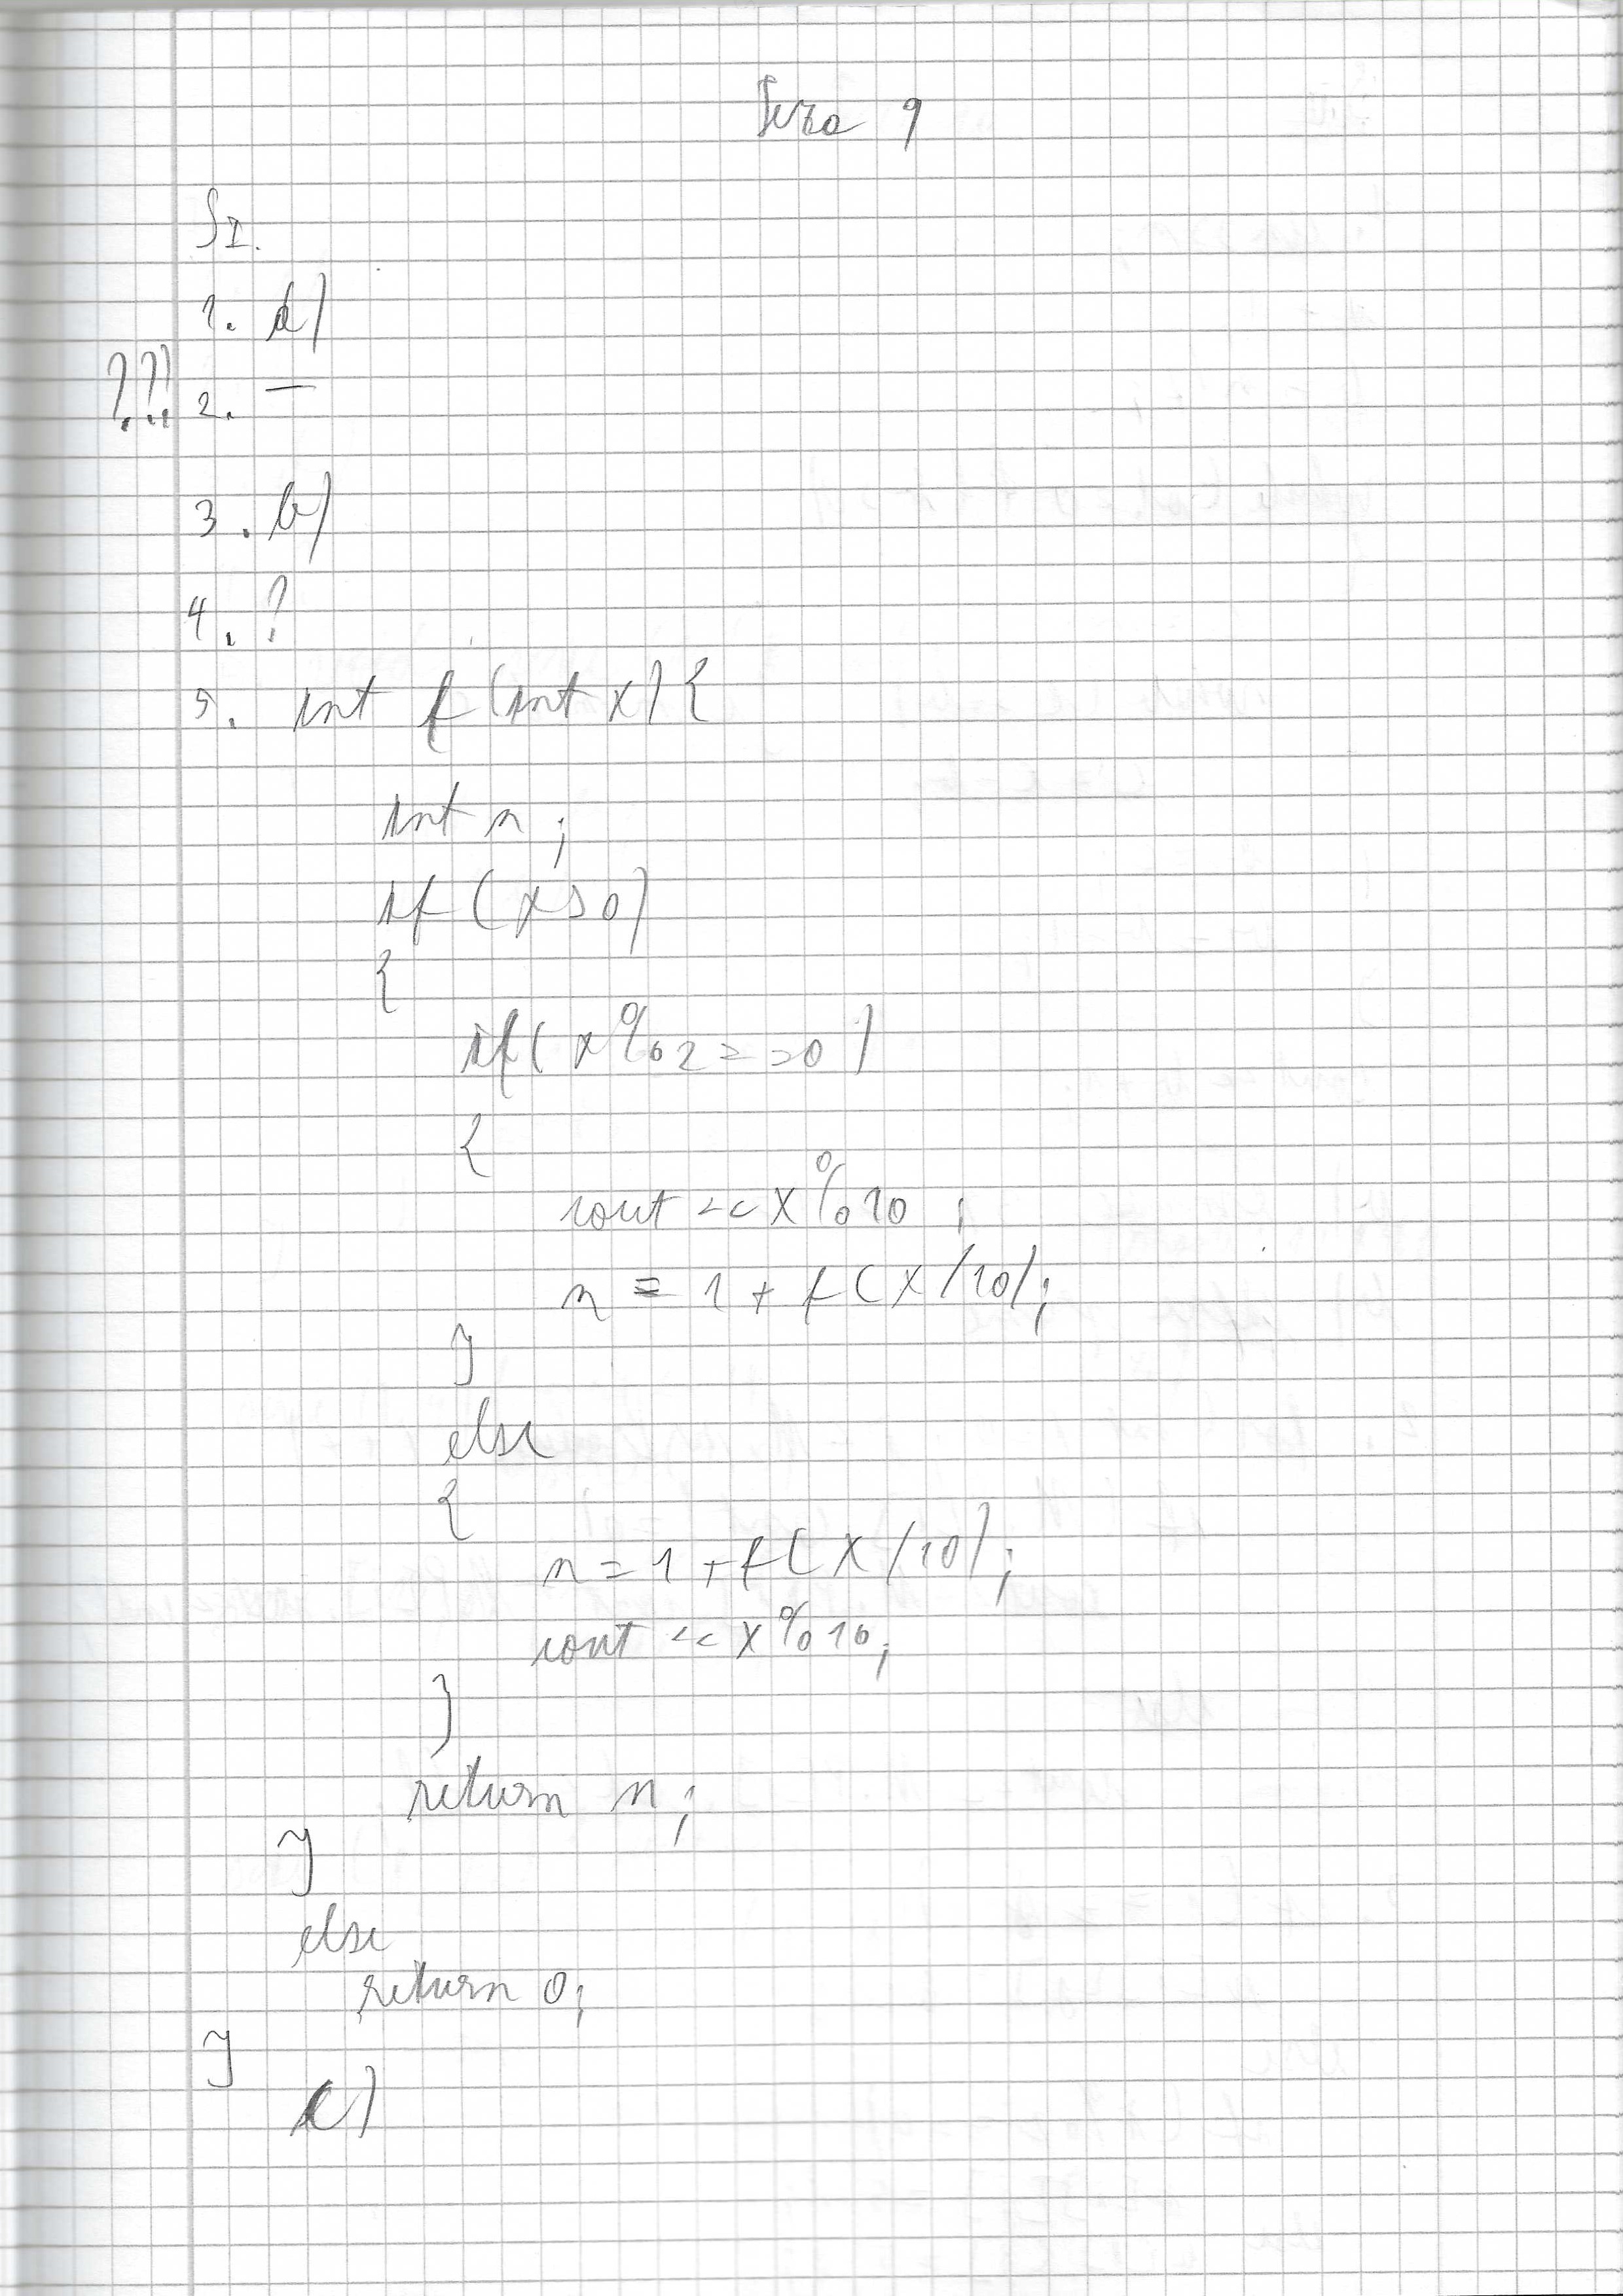 9
SI.
1. d)
???
2. —
3. b)
4. ?
5. int f(int x){
int n;
if (x>0)
{
if(x%2==0)
{
cout <<x%10;
n = 1 + f(x/10);
}
else
{
n=1+f(x/10);
cout <<x%10;
}
return n;
}
else
return 0;
}
c)